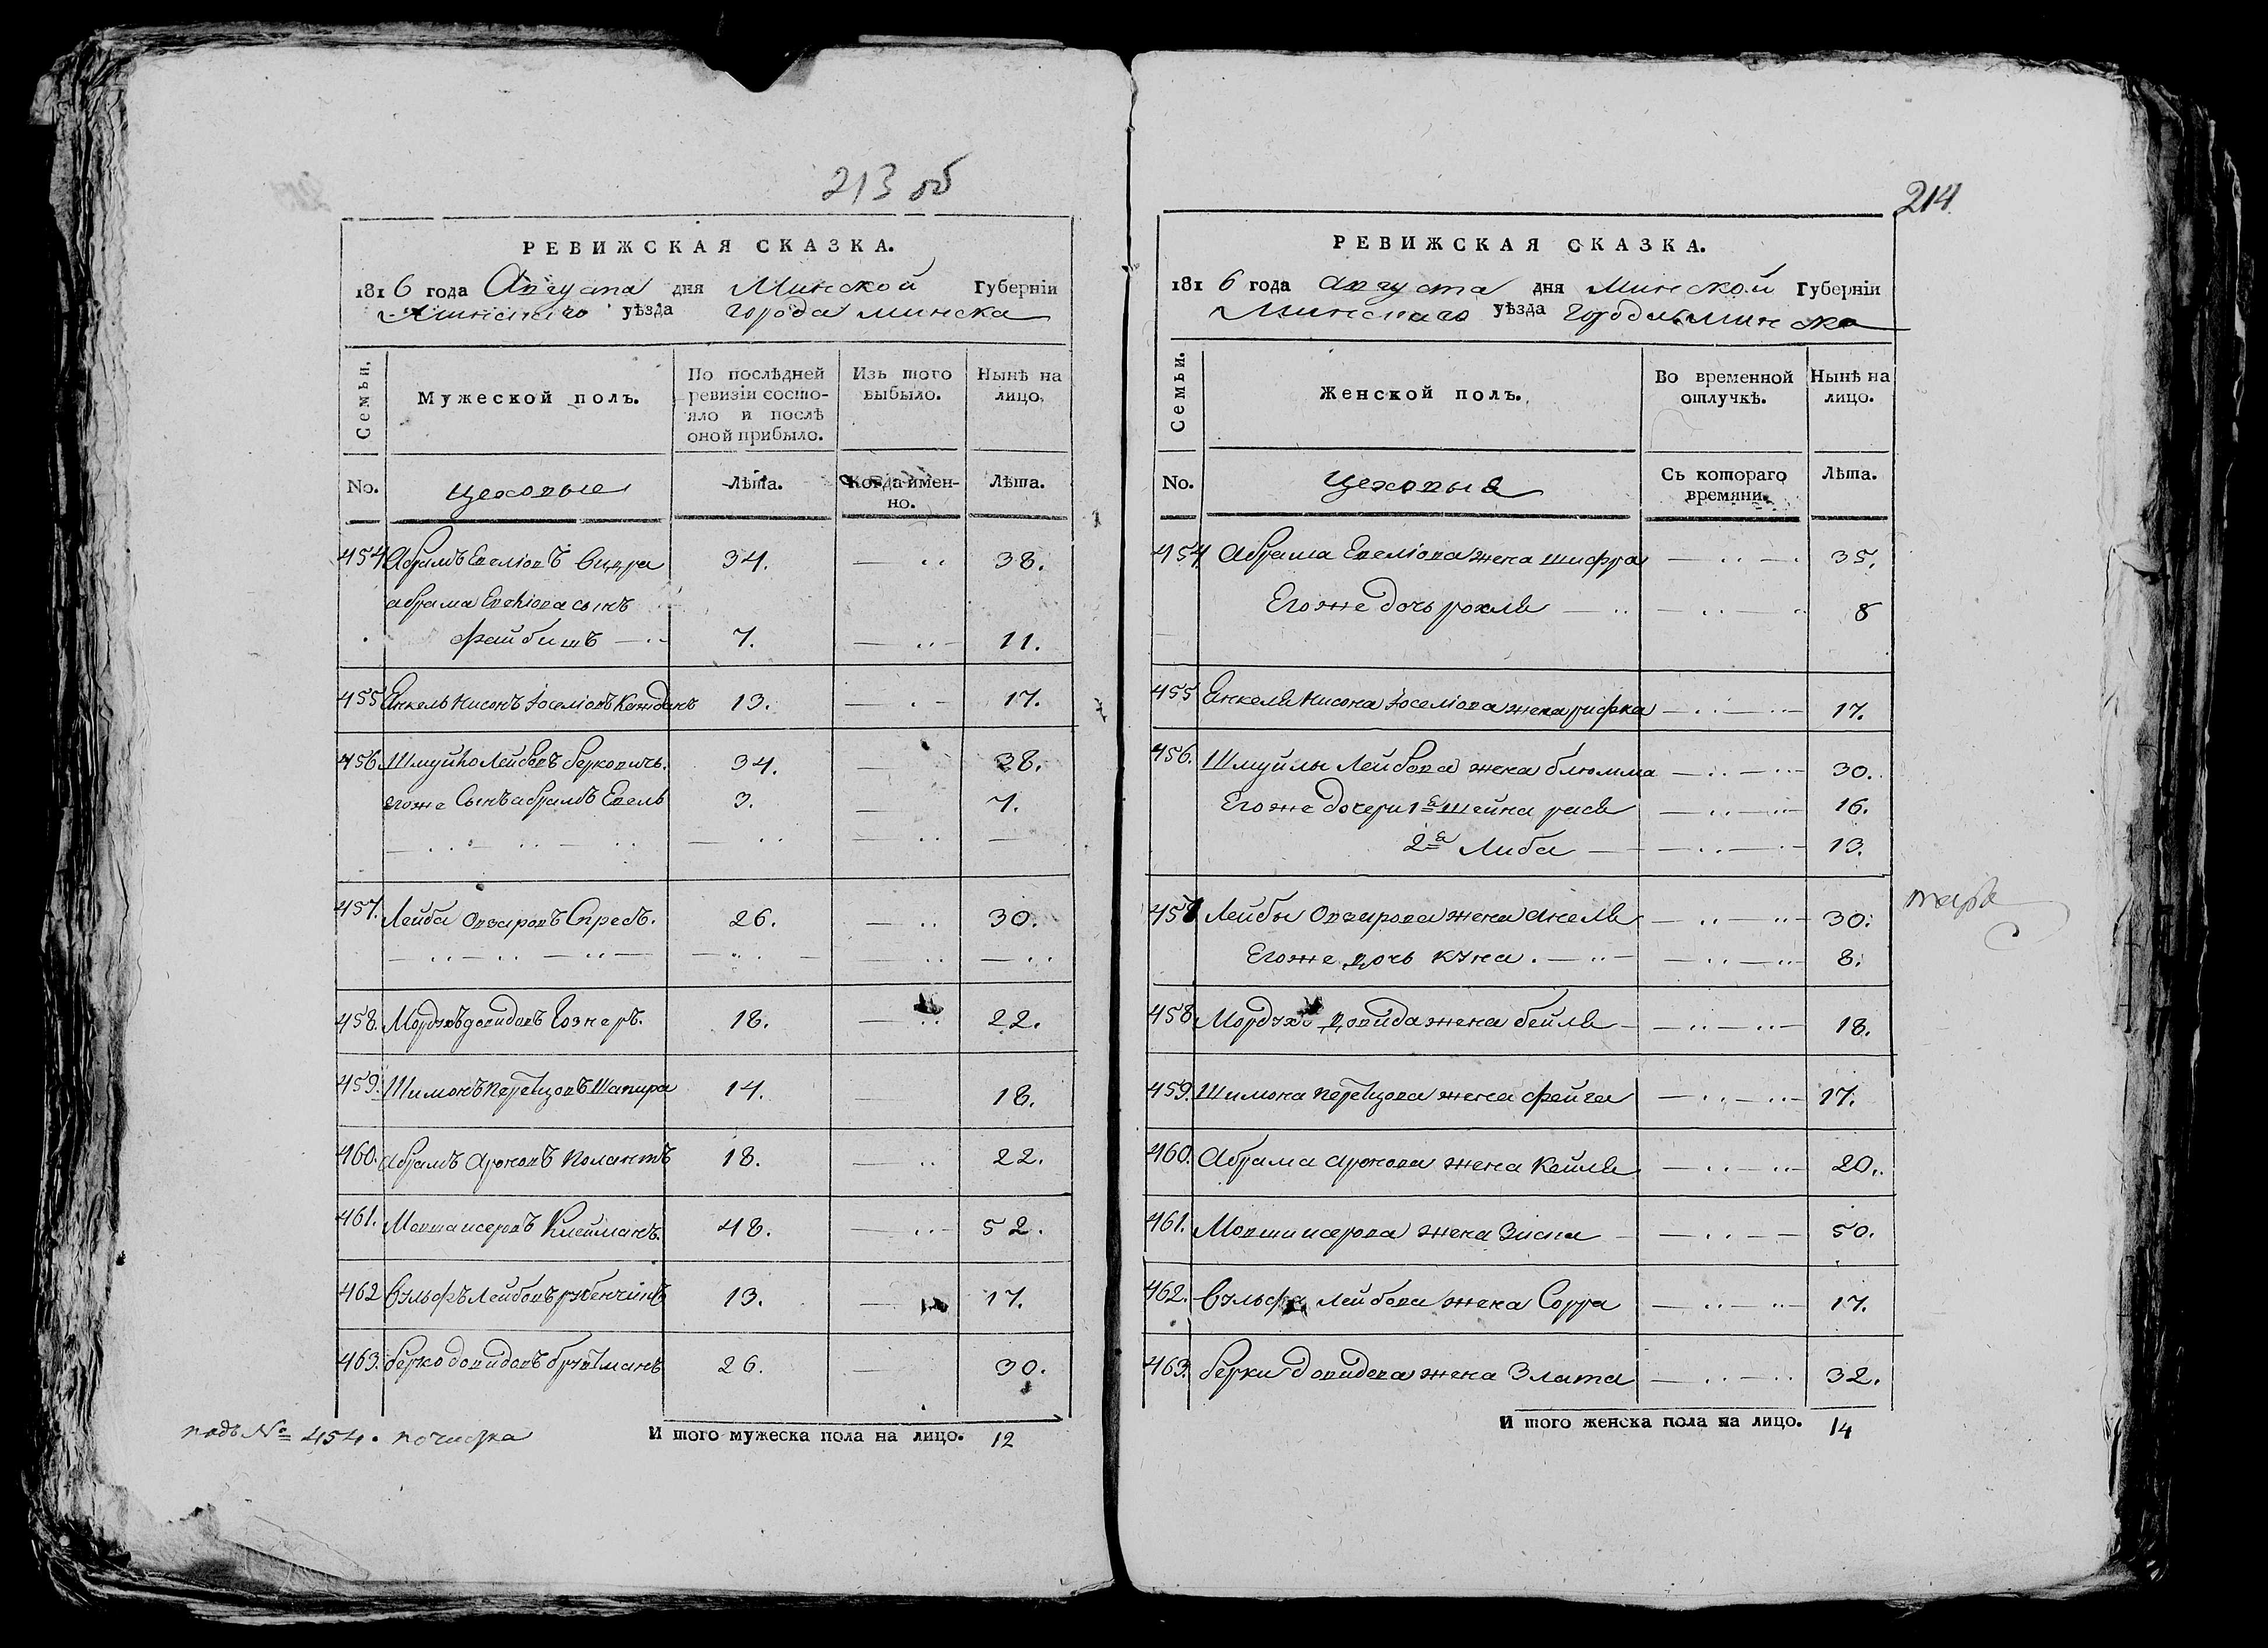 213 об
РЕВИЖСКАЯ СКАЗКА.
1816 года Августа дня Минской Губерніи
Минскаго уѣзда города минска
Семьи.
Мужеской полъ.
По послѣдней ревизіи состо-
яло и послѣ
оной прибыло.
Изъ того выбыло.
Нынѣ на лицо.
No.
цеховые
Лѣта.
Когда имен-
но.
Лѣта.
454 Абрамъ Евеліовъ 34. 38.
абрама Евеліова сынъ
файбишъ 7. 11.
455 Енкель Нисонъ Іоселіовъ 13. 17.
456. Шмуйло Лейбовъ берковичъ. 34. 38.
егоже Сынъ абрамъ Евель 3. 7.
457. Лейба Овзаровъ 26. 30.
458. Мордухъ довидовъ 18. 22.
459. Шимонъ перетцовъ Шапира 14. 18.
460. абрамъ ароновъ полантъ 18. 22.
461. Мовша исеровъ Клейманъ. 48. 52.
462 Вульфъ Лейбовъ рубенчикъ 13. 17.
463. берко довидовъ 26. 30.
И того мужеска пола на лицо. 12
подъ № 454. почистка
214
РЕВИЖСКАЯ СКАЗКА.
1816 года августа дня Минской Губерніи
Минскаго уѣзда города Минска
Семьи.
Женской полъ.
Во временной отлучкѣ.
Нынѣ на лицо.
No.
цеховые
Съ котораго времяни.
Лѣта.
454 Абрама Евеліова жена шифра 35.
Егоже дочь рохля 8
455 Енкеля Нисона Іоселіова жена рифка 17.
456. Шмуйлы Лейбова жена блюмма 30.
Егоже дочери 1я Шейна рася 16.
2я Либа 13.
457 Лейбы Овзарова жена 30.
Егоже дочь куна. 8.
458 Мордуха довида жена бейля 18.
459. Шимона перетцова жена фейга 17.
460. Абрама аронова жена Кейля 20.
461. Мовши исерова жена Зисла 50.
462. Вульфа лейбова жена Сорра 17.
463. берки довидова жена Злата 32.
И того женска пола на лицо. 14